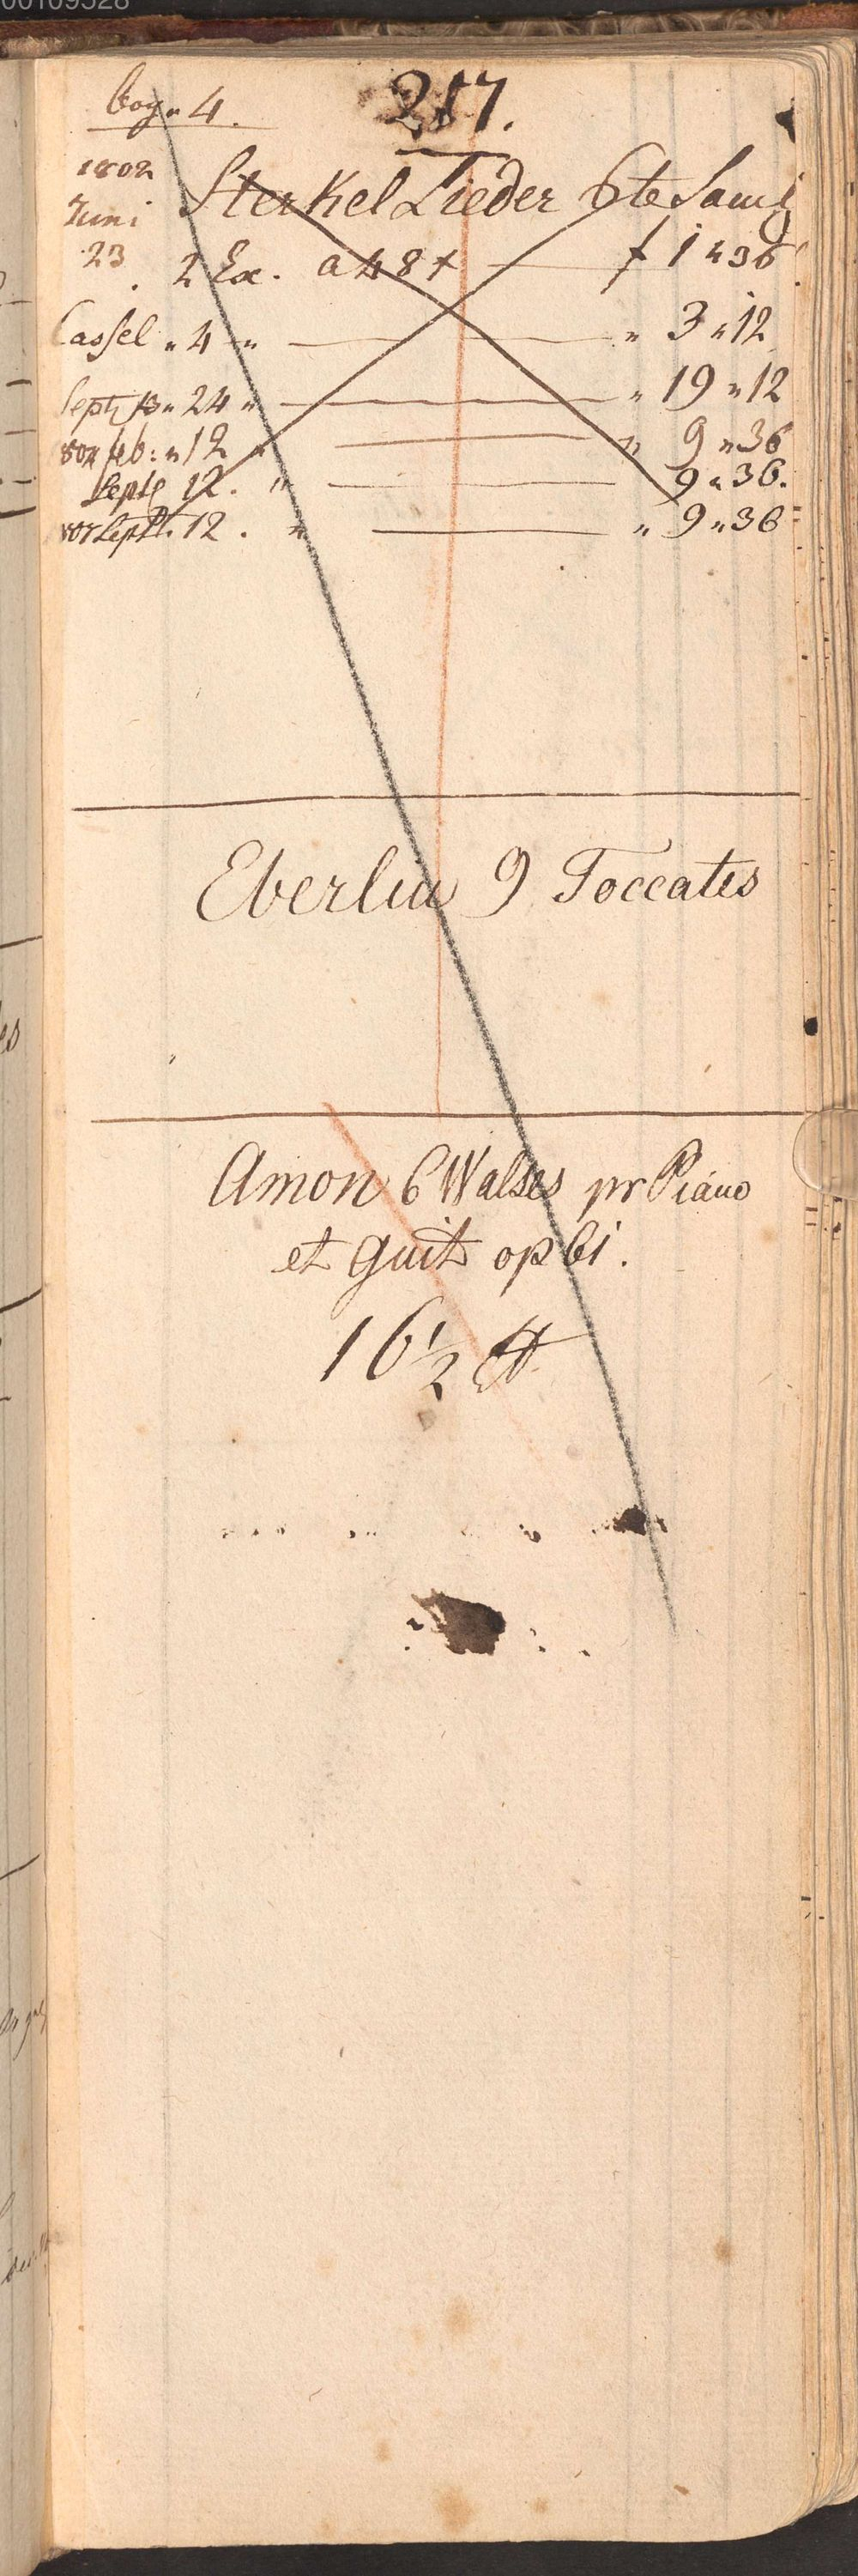 00109528
bog. 4. 217.
1802 Sterkel Lieder 6te Saml
Juni
23. 2 Ex. a 48 x — f 1 " 36
Cassel " 4 " — " 3 " 12
Sept. 13 " 24 " — " 19 " 12
804 feb: " 12 " — " 9 " 36
Septe 12. " — 9 " 36.
Sept. 12. " — " 9 " 36
Eberlin 9 Toccates
Amon 6 Walses pr Piano
et Guit op 61.
16 1/2